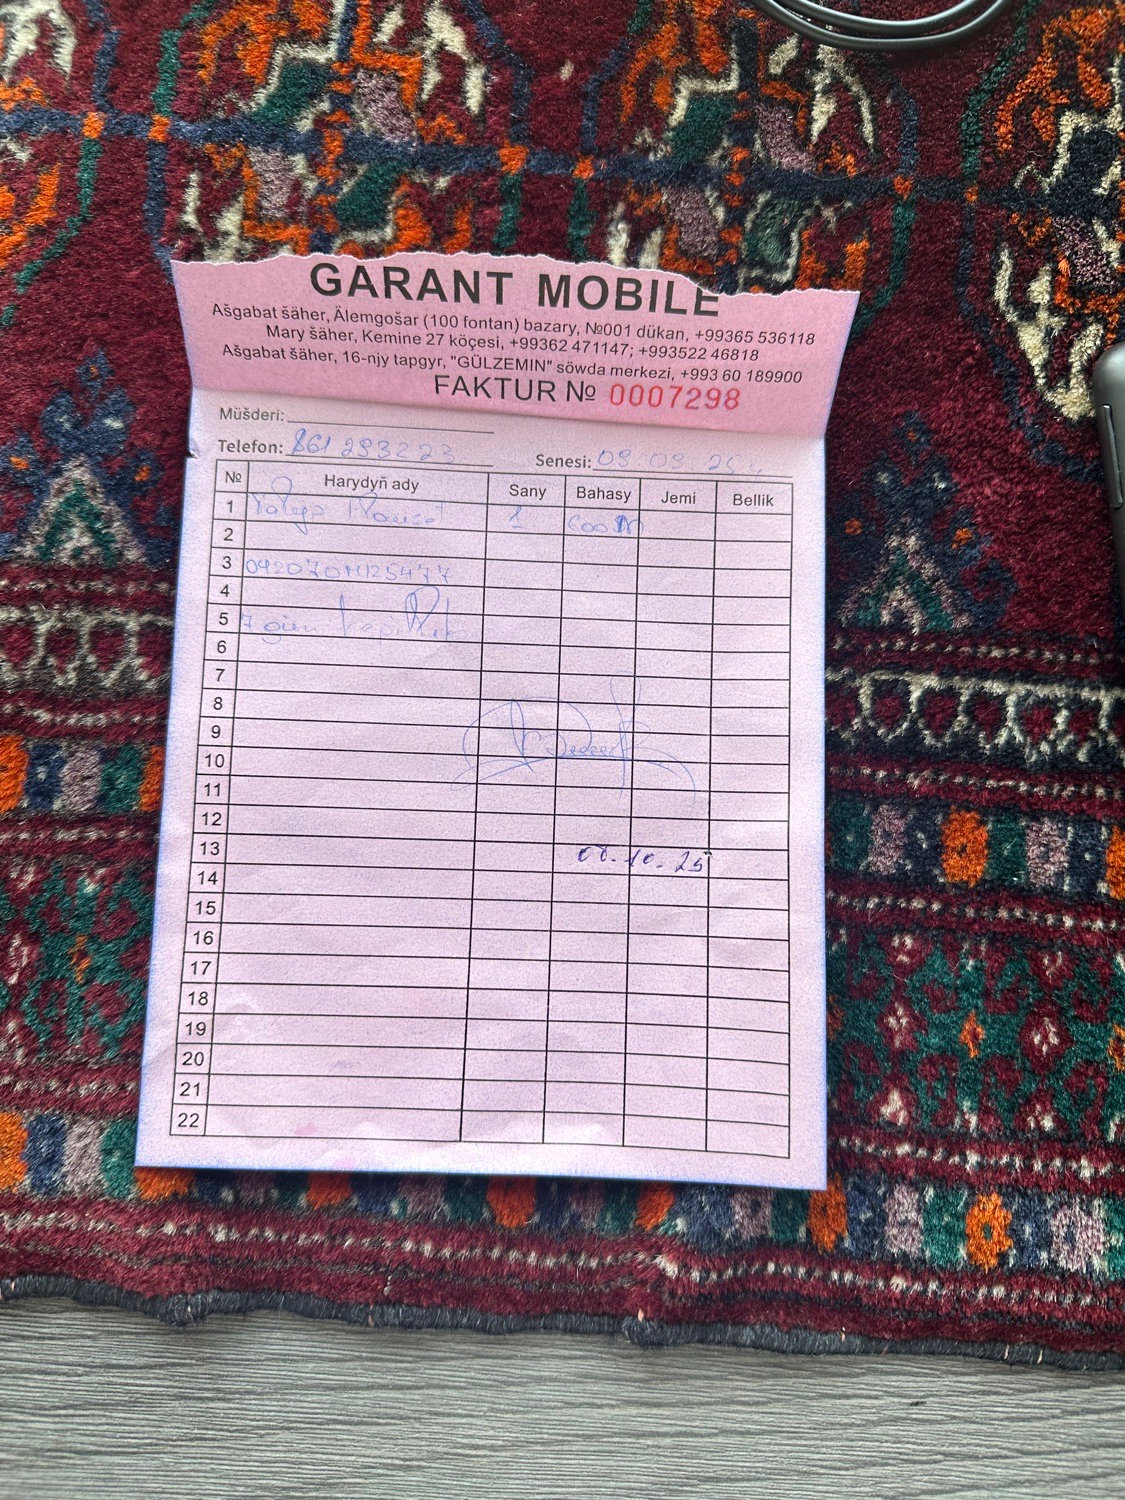 GARANT MOBILE
Aşgabat şäher, Älemgoşar (100 fontan) bazary, №001 dükan, +99365 536118
Mary şäher, Kemine 27 köçesi, +99362 471147; +993522 46818
Aşgabat şäher, 16-njy tapgyr, "GÜLZEMIN" söwda merkezi, +993 60 189900
FAKTUR № 0007298
Müşderi:
Telefon: 861 293223 Senesi: 09.09.25
№ Harydyň ady Sany Bahasy Jemi Bellik
1 1
2
3
4
5 7 gün
6
7
8
9
10
11
12
13 .10.25
14
15
16
17
18
19
20
21
22